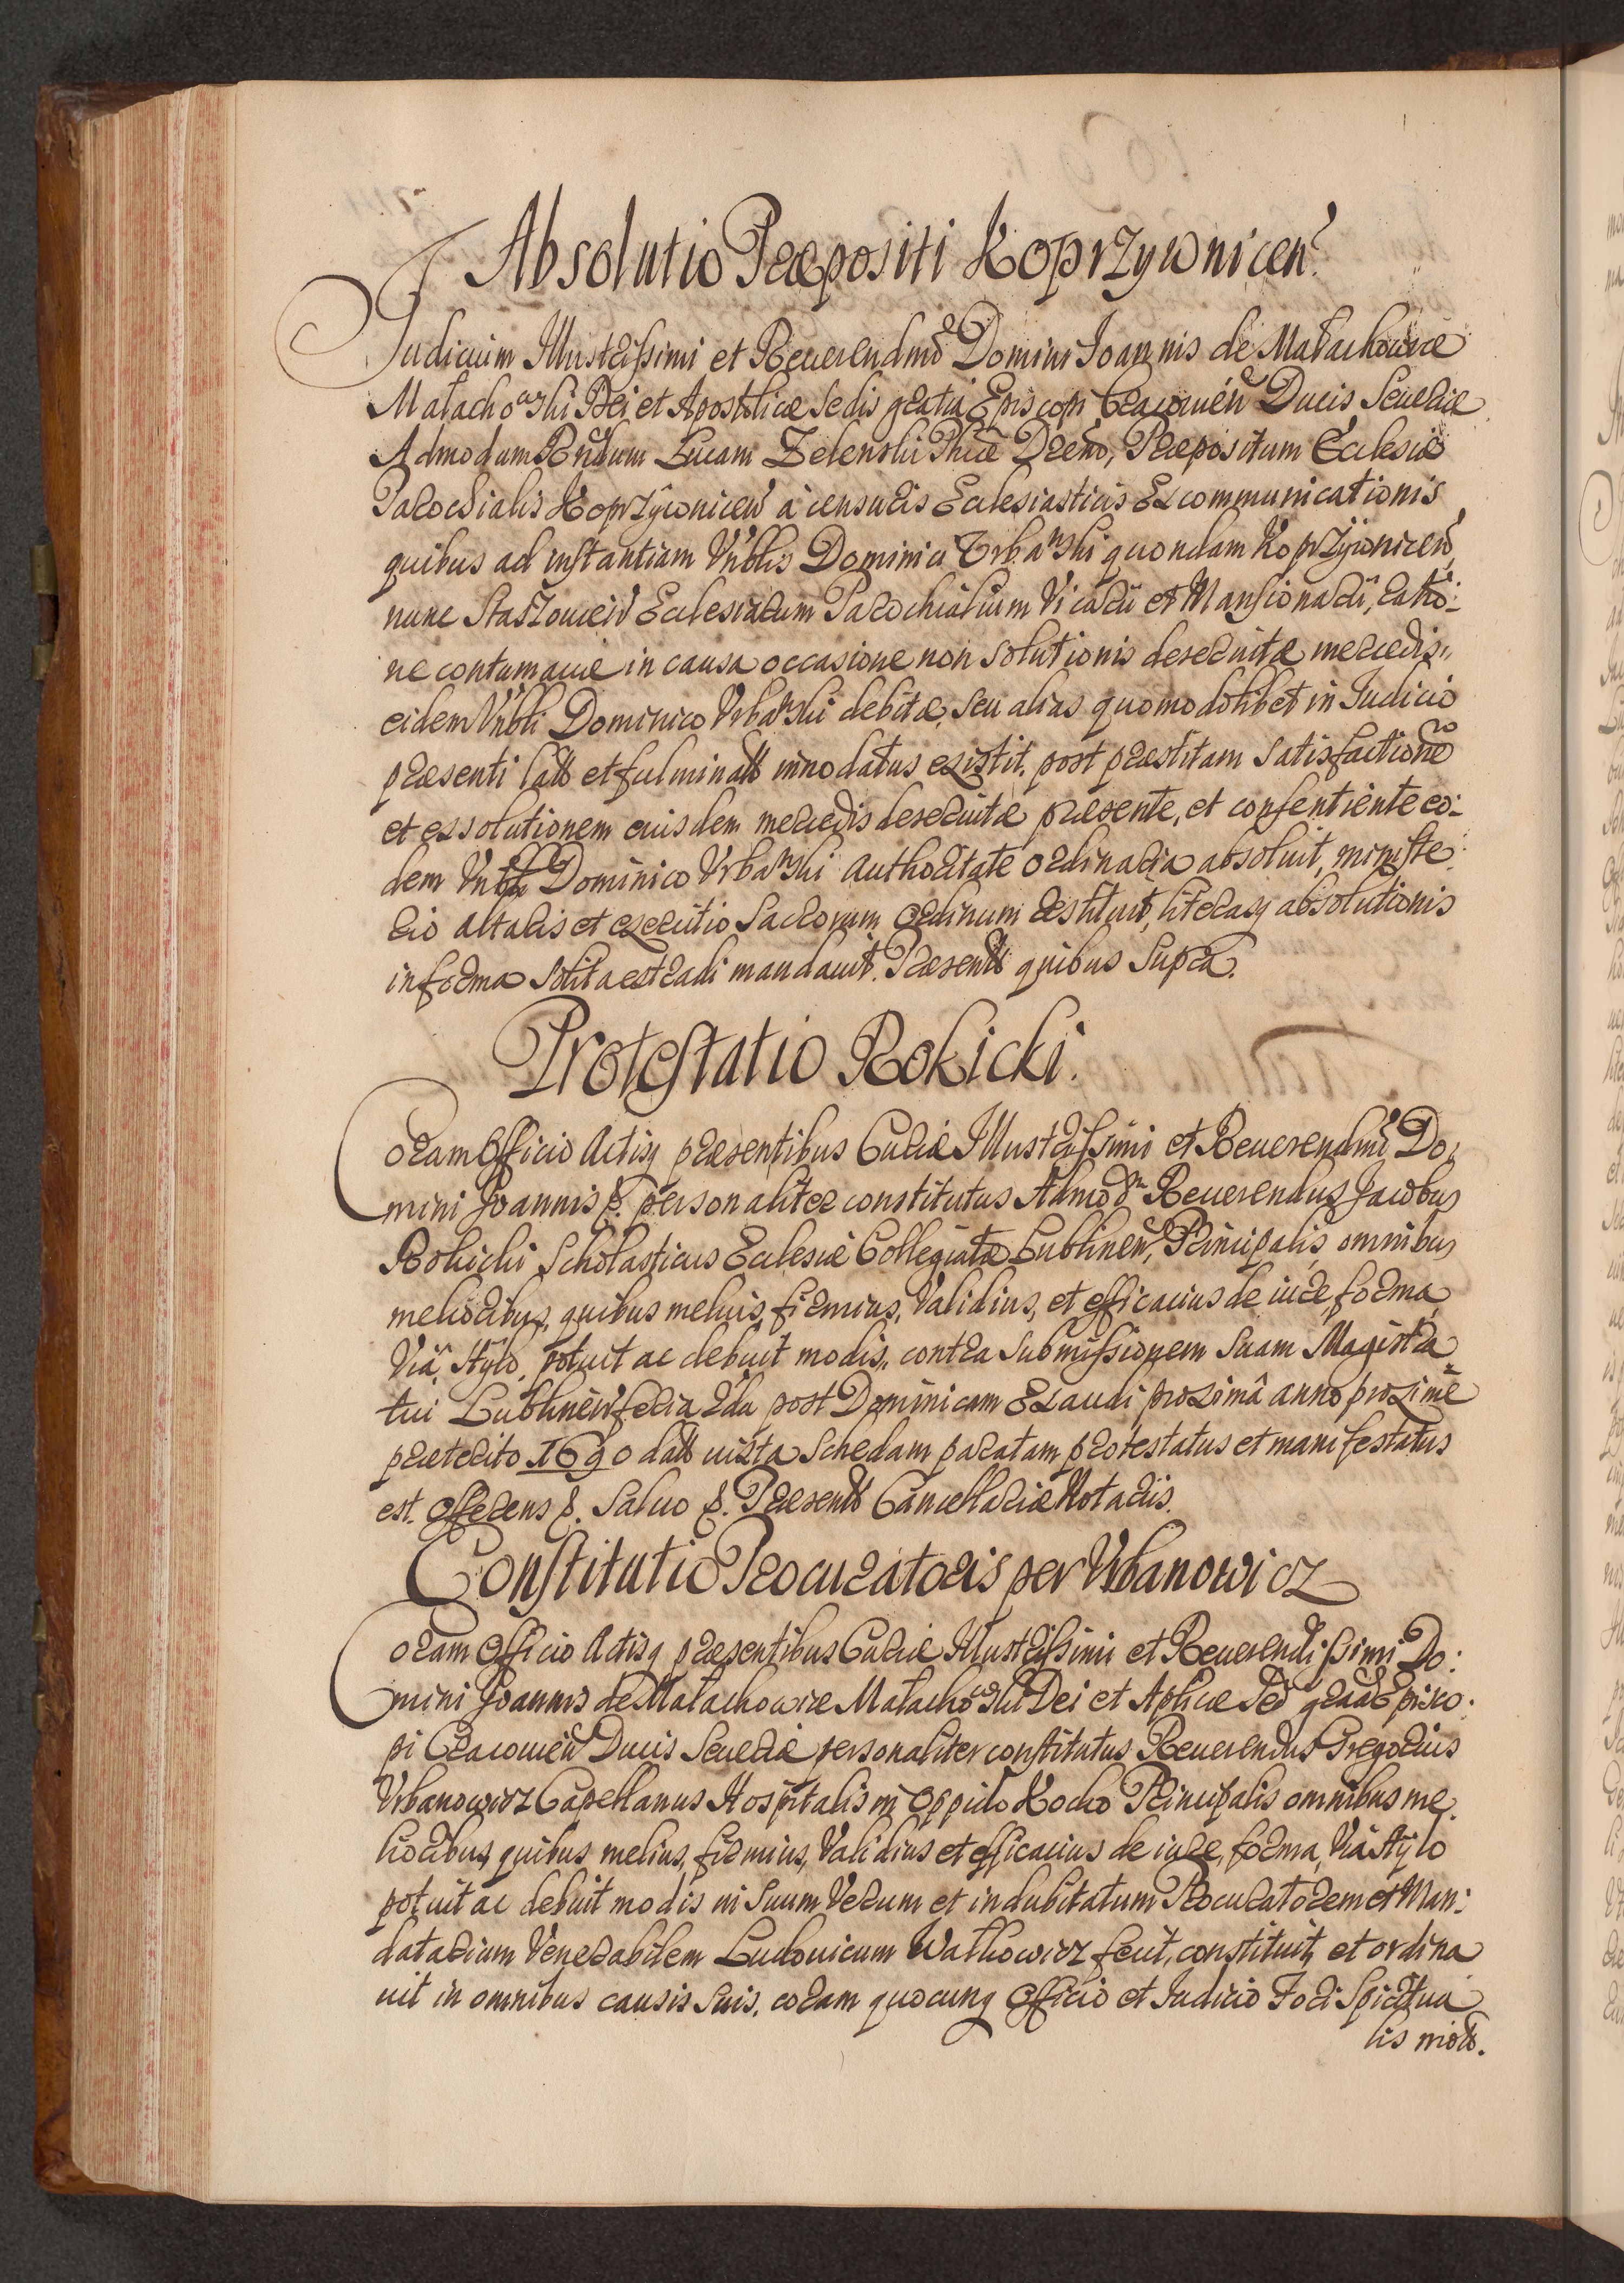 Absolutio Præpositi Koprzywnicen̄.
Judicium Illustrissimi et Reuerendmi Domini Joannis de Małachowice
Małachowski Dei et Apostolicæ Sedis gratia Episcopi Cracouien̄ Ducis Seueriæ
Admodum Rndum Lucam Zelenski Phiæ Dren̄, Præpositum Ecclesiæ
Parochialis Koprzÿwnicen̄ à censuris Ecclesiasticis Excommunicationis
quibus ad instantiam Vnblis Dominici Vrbanski quondam Koprzÿwnicen̄
nunc Staszouien̄ Ecclesiarum Parochialium Vicarii et Mansionarii, ratio-
ne contumaciæ in causa occasione non solutionis deseruitæ mercedis,
eidem Vnbli Dominico Vrbanski debitæ, seu alias quomodolibet in Judicio
præsenti latis et fulminatis innodatus existit, post præstitam satisfactionē
et exsolutionem eiusdem mercedis deseruitæ præsente, et consentiente eo-
dem Vnbli Dominico Vrbanski Authoritate ordinaria absoluit, ministe-
rio altaris et executio Sacrorum Ordinum restituit, literasq absolutionis
in forma solita extradi mandauit. Præsentibus quibus supra.
Protestatio Rokicki.
Coram Officio Actisq præsentibus Curiæ Illustrissimi et Reuerendmi Do-
mini Joannis &. personaliter constitutus Admodm Reuerendus Jacobus
Rokicki Scholasticus Ecclesiæ Collegiatæ Lublinen̄, Principalis, omnibus
melioribus, quibus melius, firmius, Validius, et efficacius de iure, forma,
Viâ, Stÿlo, potuit ac debuit modis, contra submissionem suam Magistra
tui Lublinen̄ feria 2da post Dominicam Exaudi proximâ anno proxime
præterito 1690 datam iuxta Schedam paratam protestatus et manifestatus
est. Offerens &. Saluo &. Præsentibus Cancellariæ Notariis.
Constitutio Procuratoris per Vrbanowicz
Coram Officio Actisq præsentibus Curiæ Illustrissimi et Reuerendissimi Do-
mini Joannis de Małachowice Małachowski Dei et Aplicæ Sed gratia Episco-
pi Cracouien̄ Ducis Seueriæ personaliter constitutus Reuerendus Gregorius
Vrbanowicz Capellanus Hospitalis in Oppido Kocko Principalis omnibus me-
lioribus, quibus melius, firmius, Validius et efficacius de iure, forma, Via Stÿlo
potuit ac debuit modis in suum Verum et indubitatum Procuratorem et Man-
datarium Venerabilem Ludouicum Walkowicz fecit, constituit, et ordina
uit in omnibus causis suis, coram quocunq Officio et Judicio Fori Spiritua
lis motis.